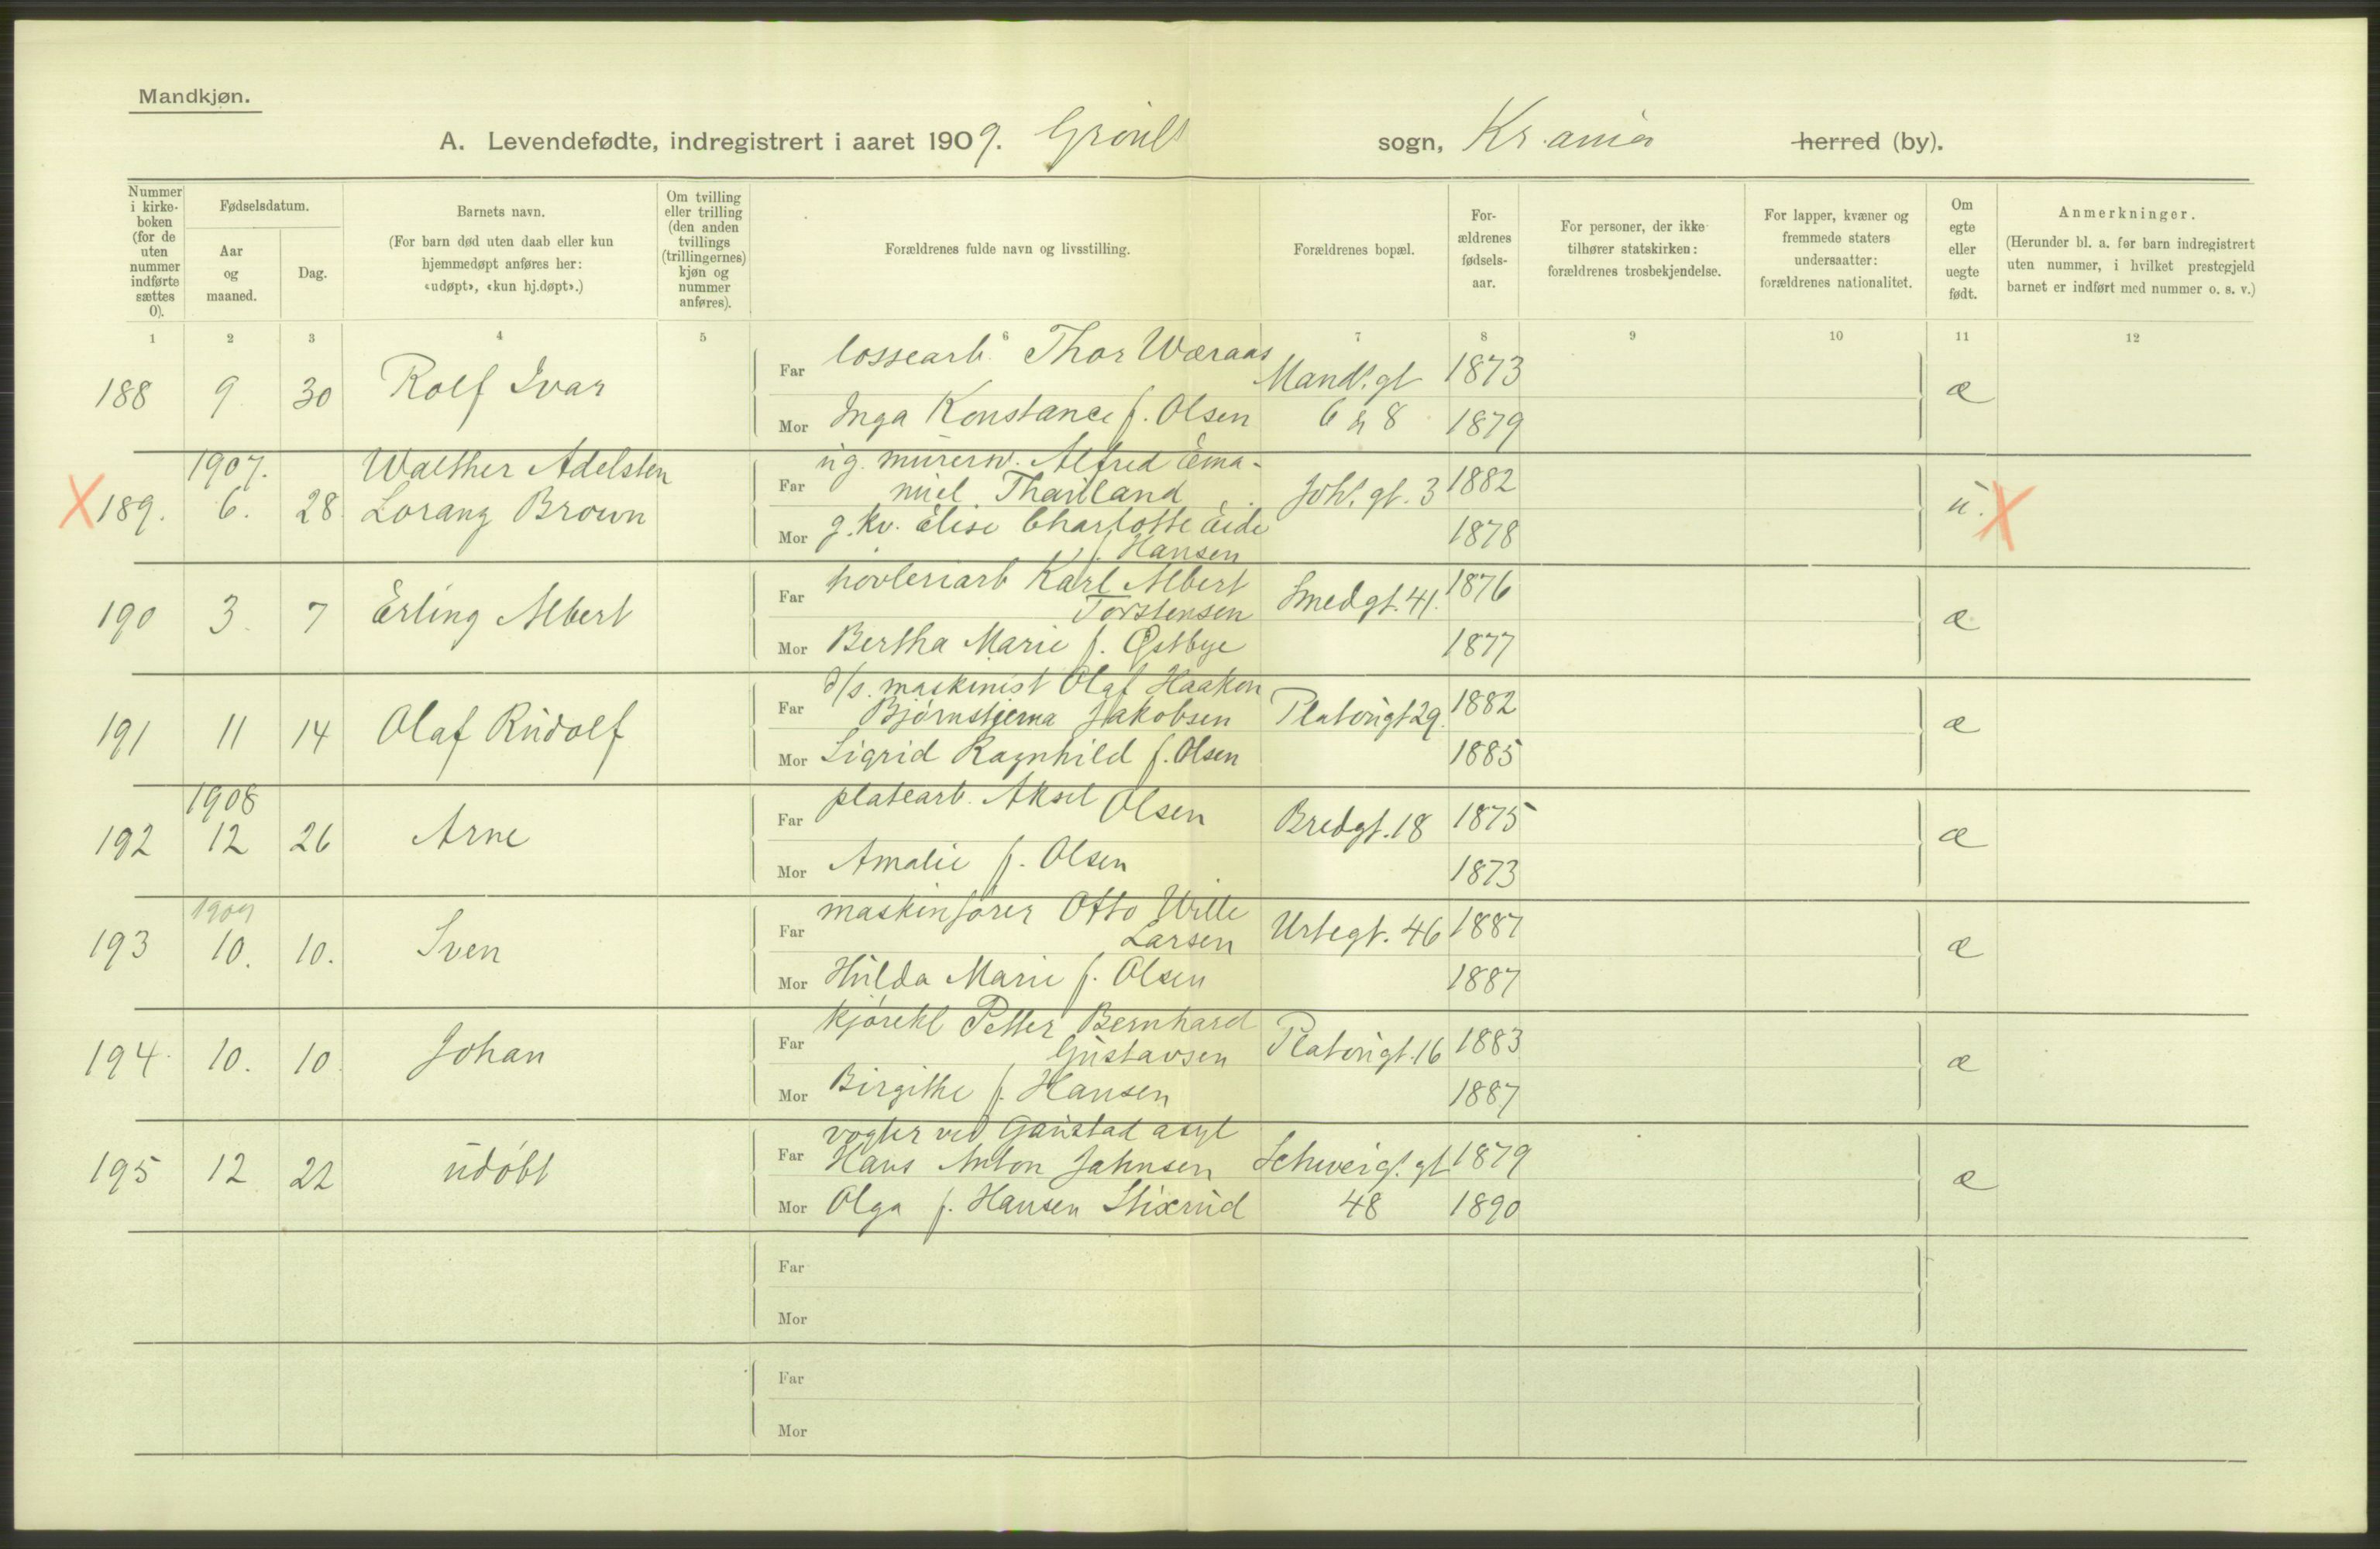 Mandkjøn.
A. Levendefødte, indregistrert i aaret 1909. Grønl. sogn, Kr.ania herred (by).
Nummer i kirke-boken (for de uten nummer indførte sættes 0).
Fødselsdatum.
Aar og maaned.
Dag.
Barnets navn.
(For barn død uten daab eller kun hjemmedøpt anføres her: «udøpt», «kun hj.døpt».)
Om tvilling eller trilling (den anden tvillings (trillingernes) kjøn og nummer anføres).
Forældrenes fulde navn og livsstilling.
Forældrenes bopæl.
For-ældrenes fødsels-aar.
For personer, der ikke tilhører statskirken: forældrenes trosbekjendelse.
For lapper, kvæner og fremmede staters undersaatter: forældrenes nationalitet.
Om egte eller uegte født.
Anmerkninger.
(Herunder bl. a. for barn indregistrert uten nummer, i hvilket prestegjeld barnet er indført med nummer o. s. v.)
1 2 3 4 5 6 7 8 9 10 11 12
188 9 30 Rolf Ivar
Far lossearb. Thor Wæraas Mand.gt 1873 æ
Mor Inga Konstance f. Olsen 6 & 8 1879
1907. Walther Adelsten
X 189. 6. 28. Lorang Brown
Far ug. murersv. Alfred Ema-
nuel Thailland Joh. gt. 3 1882 u. X
Mor g. kv. Elise Charlotte Eide
f. Hansen 1878
190 3 7 Erling Albert
Far høvleriarb Karl Albert
Torstensen Smedgt. 41. 1876 æ
Mor Bertha Marie f. Østbye 1877
191 11 14 Olaf Rudolf
Far d/s. maskinist Olaf Haakon
Bjørnstjerna Jakobsen Platougt 29. 1882 æ
Mor Sigrid Ragnhild f. Olsen 1885
1908
192 12 26 Arne
Far platearb. Aksel Olsen Bredgt. 18 1875 æ
Mor Amalie f. Olsen 1873
1909
193 10. 10. Sven
Far maskinfører Otto Wille
Larsen Urtegt. 46 1887 æ
Mor Hulda Marie f. Olsen 1887
194. 10. 10 Johan
Far kjørekl Petter Bernhard
Gustavsen Platougt. 16 1883 æ
Mor Birgithe f. Hansen 1887
195 12 22 udøbt
Far vogter ved Gaustad asyl
Hans Anton Jahnsen Schweig. gt 1879 æ
Mor Olga f. Hansen Stixrud 48 1890
Far
Mor
Far
Mor